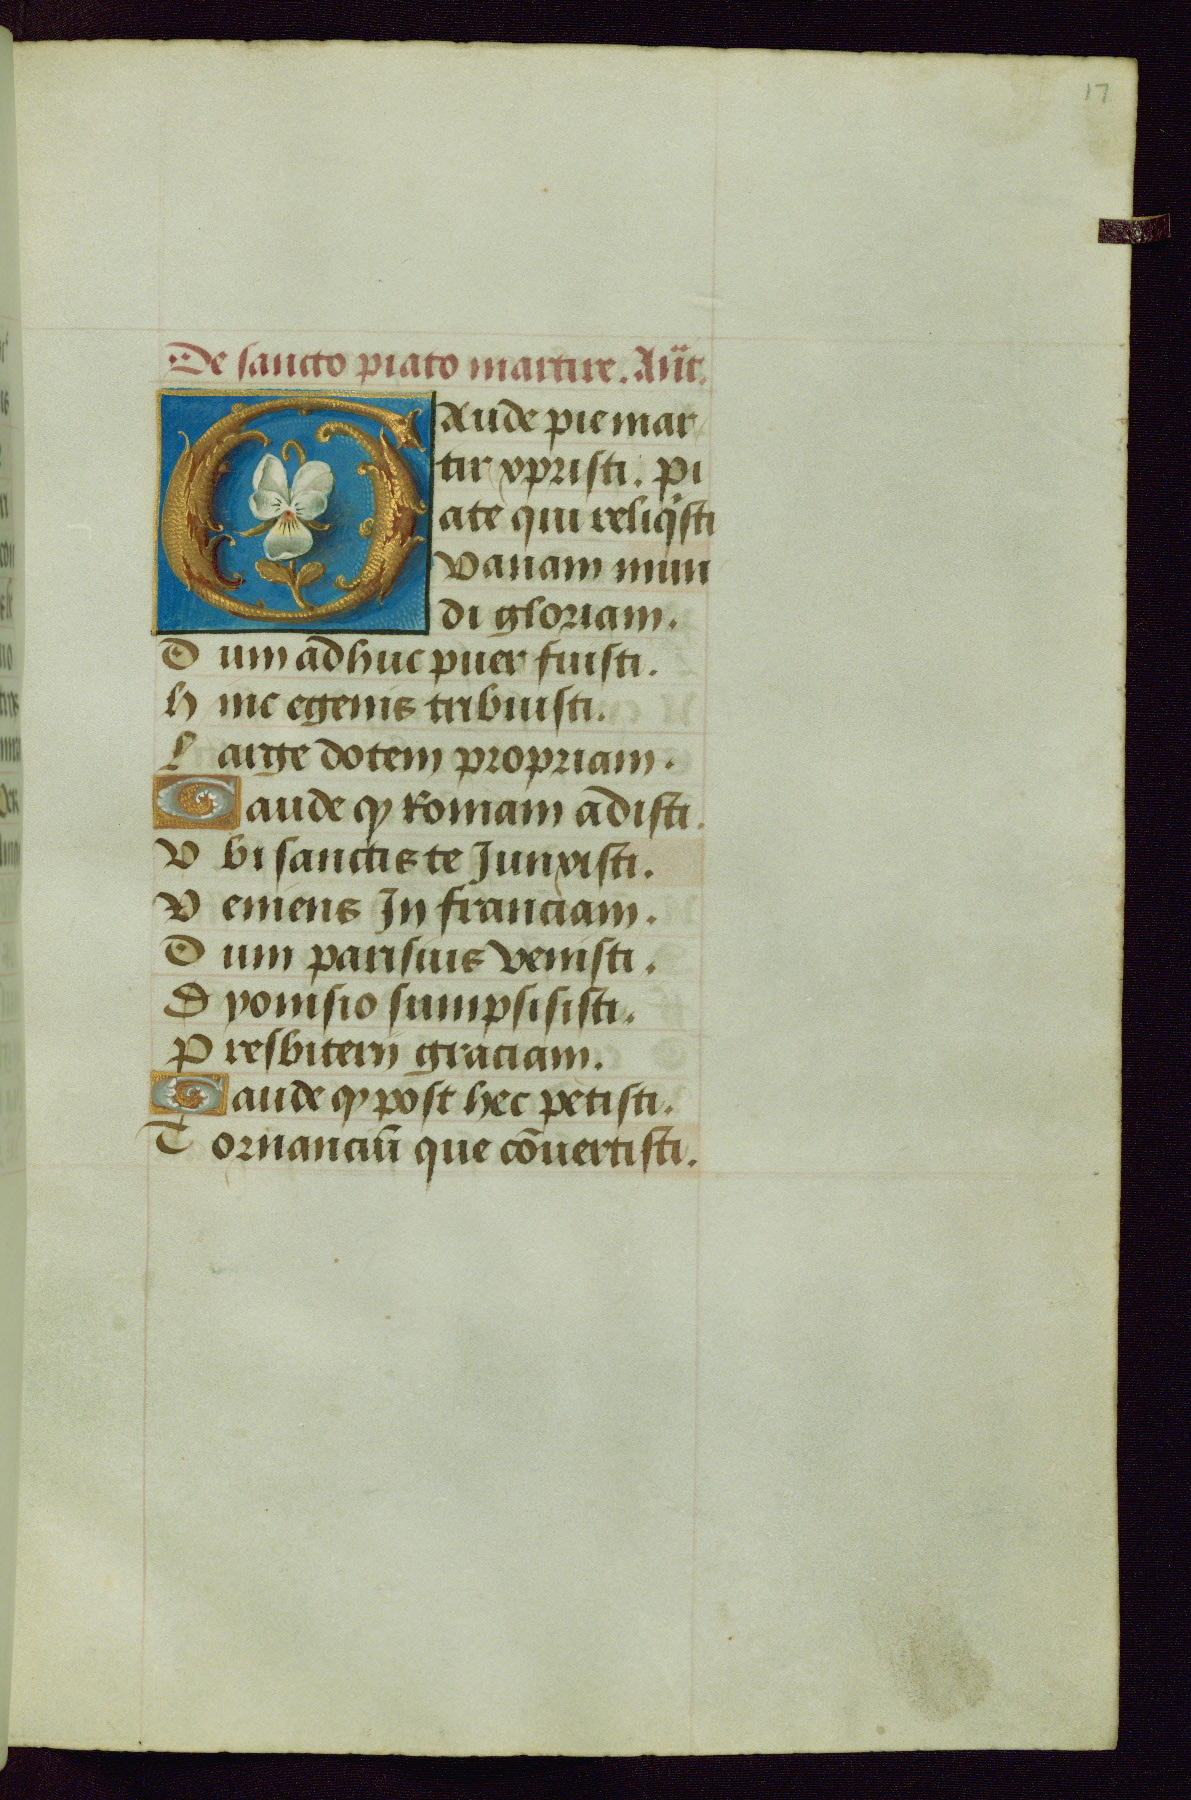 17
De sancto piato martire. Añt.
GAude pie mar
tir xpristi. pi
ate qui reliq̓sti
vanam mun
di gloriam.
Dum adhuc puer fuisti.
Hinc egenis tribuisti.
Large dotem propriam.
Gaude ꝙ Romam adisti.
Vbi sanctis te Junxisti.
Veniens In franciam.
Dum parisius venisti.
Dyonisio sumpsisisti.
Presbiterij graciam.
Gaude ꝙ post hec petisti.
Tornanciū que cōuertisti.